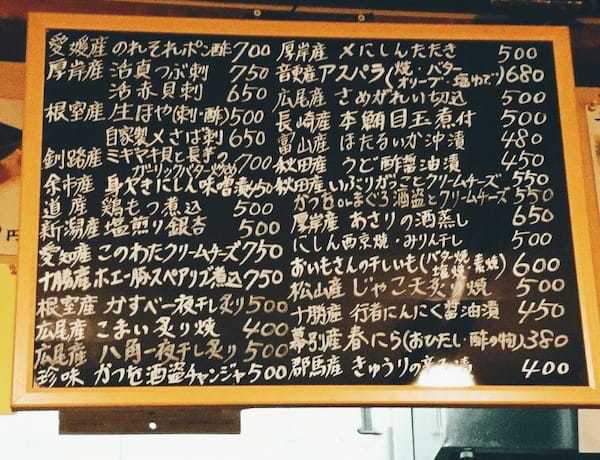 愛媛産 のれそれポン酢 700
厚岸産 活真つぶ刺 750
活赤貝刺 650
根室産 生ほや(刺・酢)500
自家製〆さば刺 650
釧路産 ミヤキ貝と長芋の
ガーリックバター炒め 700
余市産 身やきにしん味噌漬450
道産 鶏もつ煮込 500
新潟産 塩煎り銀杏 500
愛知産 このわたクリームチーズ 750
十勝産 ホエー豚スペアリブ煮込 750
根室産 かすべ一夜干し炙り 500
広尾産 こまい炙り焼 400
広尾産 八角一夜干し炙り 500
珍味 かつを酒盗チャンジャ 500
厚岸産 〆にしんたたき 500
音更産 アスパラ(焼・バター
オリーブ・塩ゆで) 680
広尾産 さめがれい切込 500
長崎産 本鮪目玉煮付 500
富山産 ほたるいか沖漬 480
秋田産 うど酢醤油漬 450
秋田産 いぶりがっことクリームチーズ 550
かつをorまぐろ酒盗とクリームチーズ 550
厚岸産 あさりの酒蒸し 650
にしん西京焼・みりん干し 500
おいもさんの干しいも(バター焼
塩焼・素焼) 600
松山産 じゃこ天炙り焼 500
十勝産 行者にんにく醤油漬 450
幕別産 春にら(おひたし・酢の物) 380
郡馬産 きゅうりの 漬 400
円